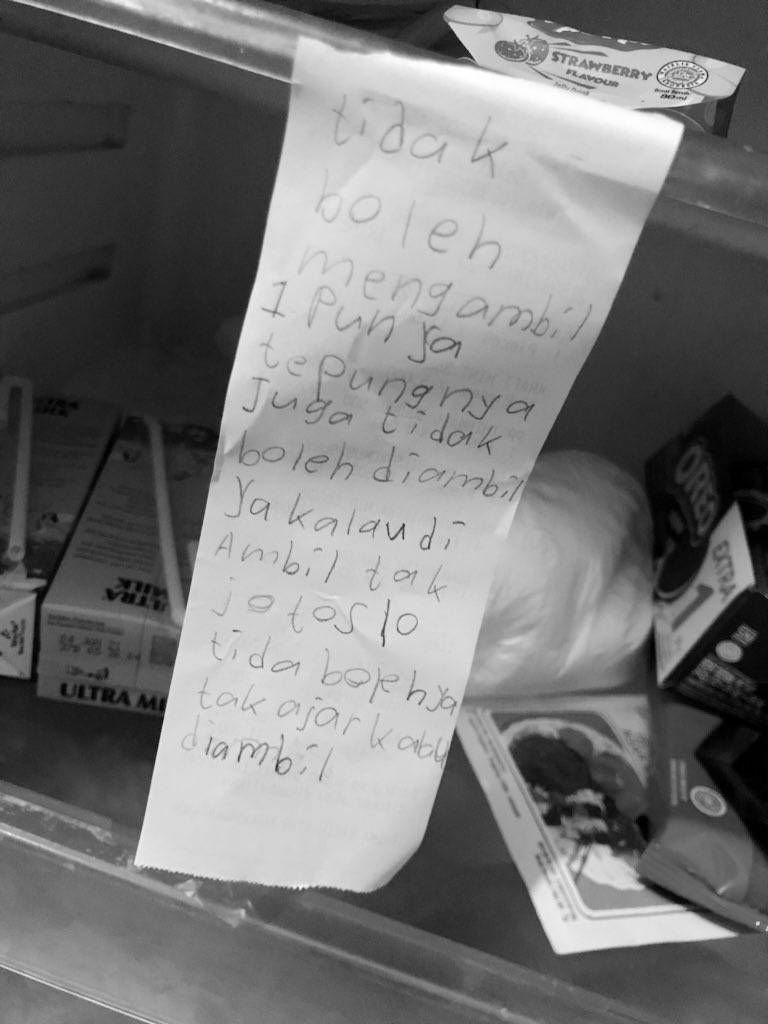 STRAWBERRY
FLAVOUR
tidak
boleh
mengambil
1 pun ya
tepungnya
Juga tidak
boleh diambil
ya kalau di
Ambil tak
jotos lo
tida boleh ya
tak ajar kalau
diambil
ULTRA
MILK
ULTRA MI
OREO
EXTRA
1